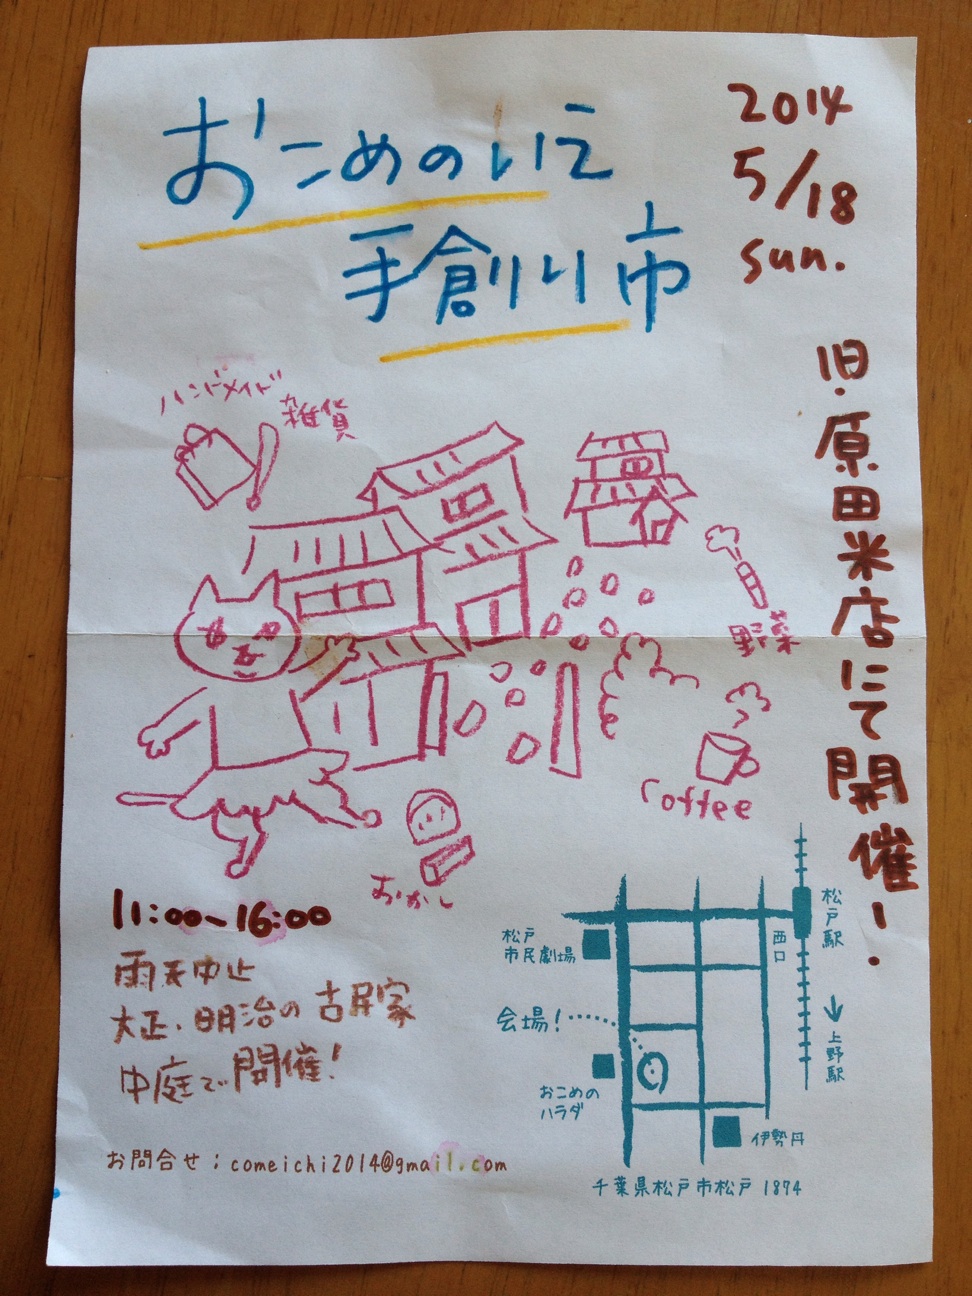 おこめのいえ
手創り市
2014
5/18
sun.
旧・原田米店にて開催！
ハンドメイド
雑貨
野菜
coffee
おかし
11:00~16:00
雨天中止
大正・明治の古民家
中庭で開催！
お問合せ：comeichi2014@gmail.com
松戸駅
西口
松戸
市民劇場
会場！
↓上野駅
おこめの
ハラダ
伊勢丹
千葉県松戸市松戸 1874